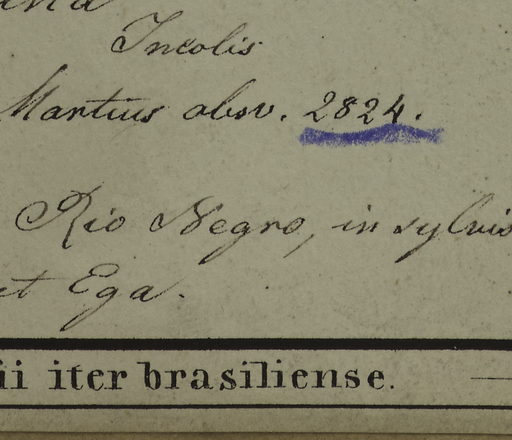 Incolis
Martius obsv. 2824.
Rio Negro, in sylvis
et Ega.
ii iter brasiliense.